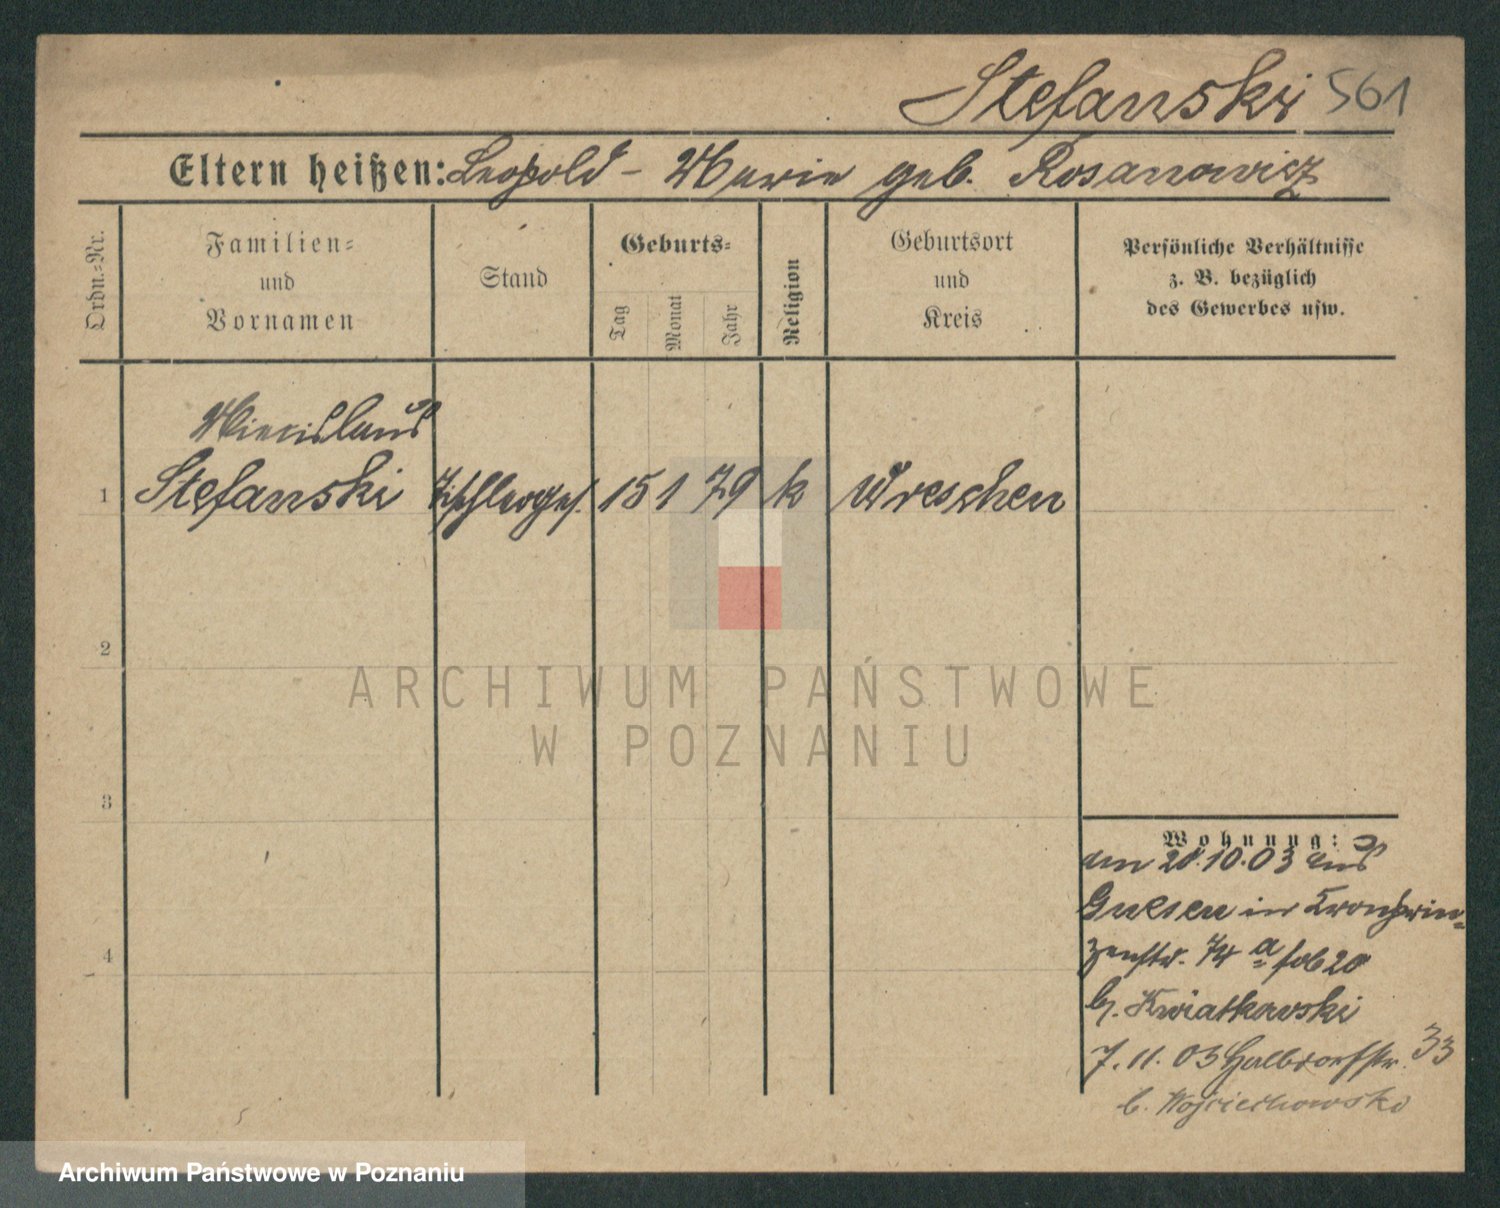 Stefanski 561
Eltern heißen: Leopold – Marie geb. Rosanowicz
Ordn.-Nr.
Familien-
und
Vornamen
Stand
Geburts-
Tag
Monat
Jahr
Religion
Geburtsort
und
Kreis
Persönliche Verhältnisse
z. B. bezüglich
des Gewerbes usw.
Miecislaus
1 Stefanski Tischlerges. 15 1 79 k Wreschen
2
3
4
ARCHIWUM PAŃSTWOWE
W POZNANIU
Wohnung:
am 20.10.03 aus
Gnesen in Kronprin-
zenstr. 74 a
b. Kwiatkowski
7.11.03 Halbdorfstr. 33
b. Wojciechowski
Archiwum Państwowe w Poznaniu